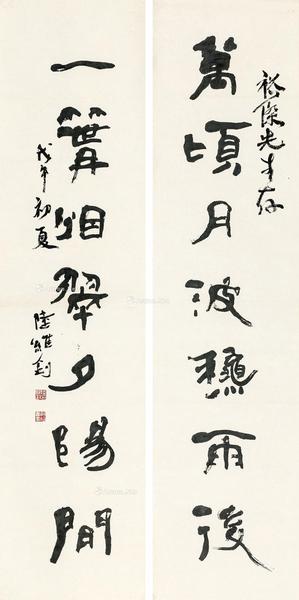 裕傑先生存
萬頃月波穐雨後
一篝烟翠夕陽間
戊午初夏
陸維釗